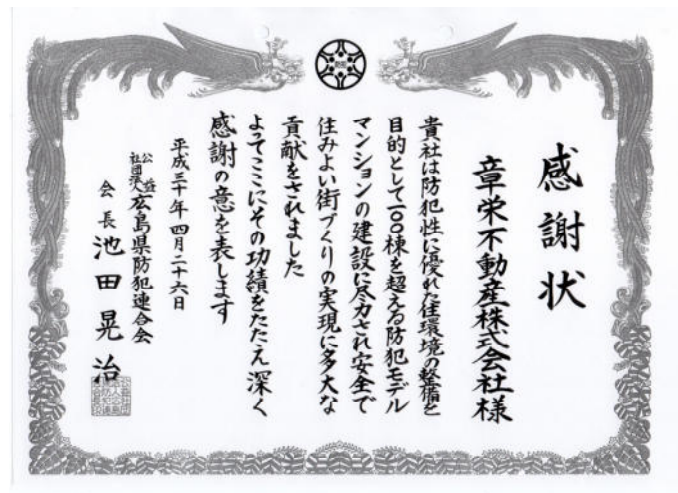 感謝状
章栄不動産株式会社様
貴社は防犯性に優れた住環境の整備を
目的として一〇〇棟を超える防犯モデル
マンションの建設に尽力され安全で
住みよい街づくりの実現に多大な
貢献をされました
よってここにその功績をたたえ深く
感謝の意を表します
平成三十年四月二十六日
公益社団法人広島県防犯連合会
会長池田晃治